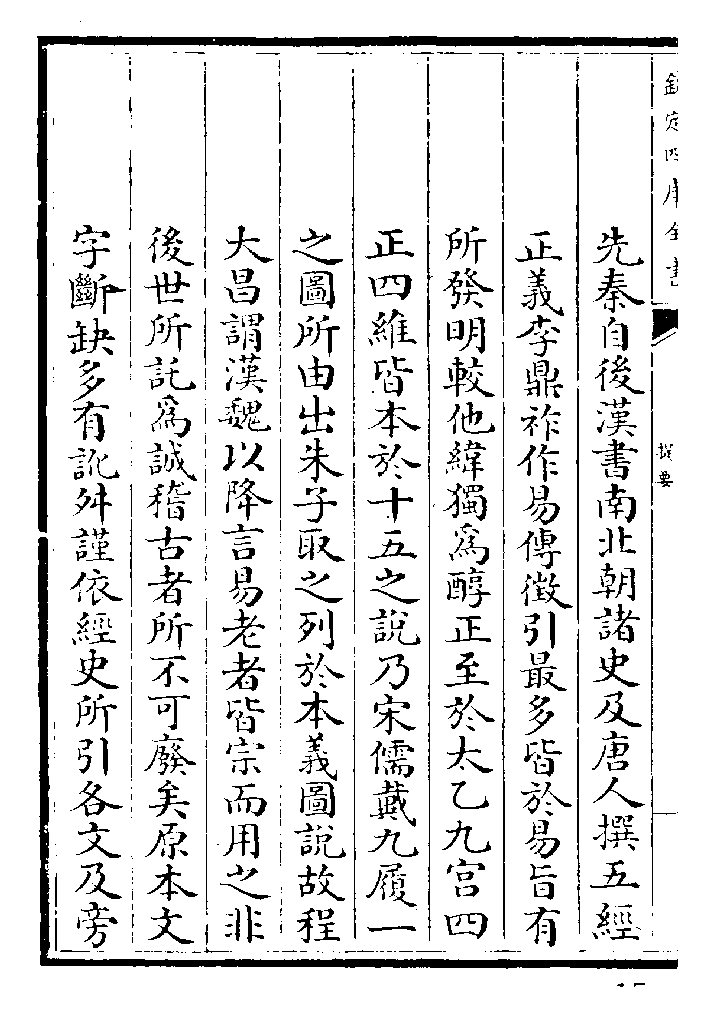 欽定四庫全書
提要
先秦自後漢書南北朝諸史及唐人撰五經
正義李鼎祚作易傳徵引最多皆於易旨有
所發明較他緯獨爲醇正至於太乙九宫四
正四維皆本於十五之說乃宋儒戴九履一
之圖所由出朱子取之列於本義圖說故程
大昌謂漢魏以降言易老者皆宗而用之非
後世所託爲誠稽古者所不可廢矣原本文
字斷缺多有訛舛謹依經史所引各文及旁